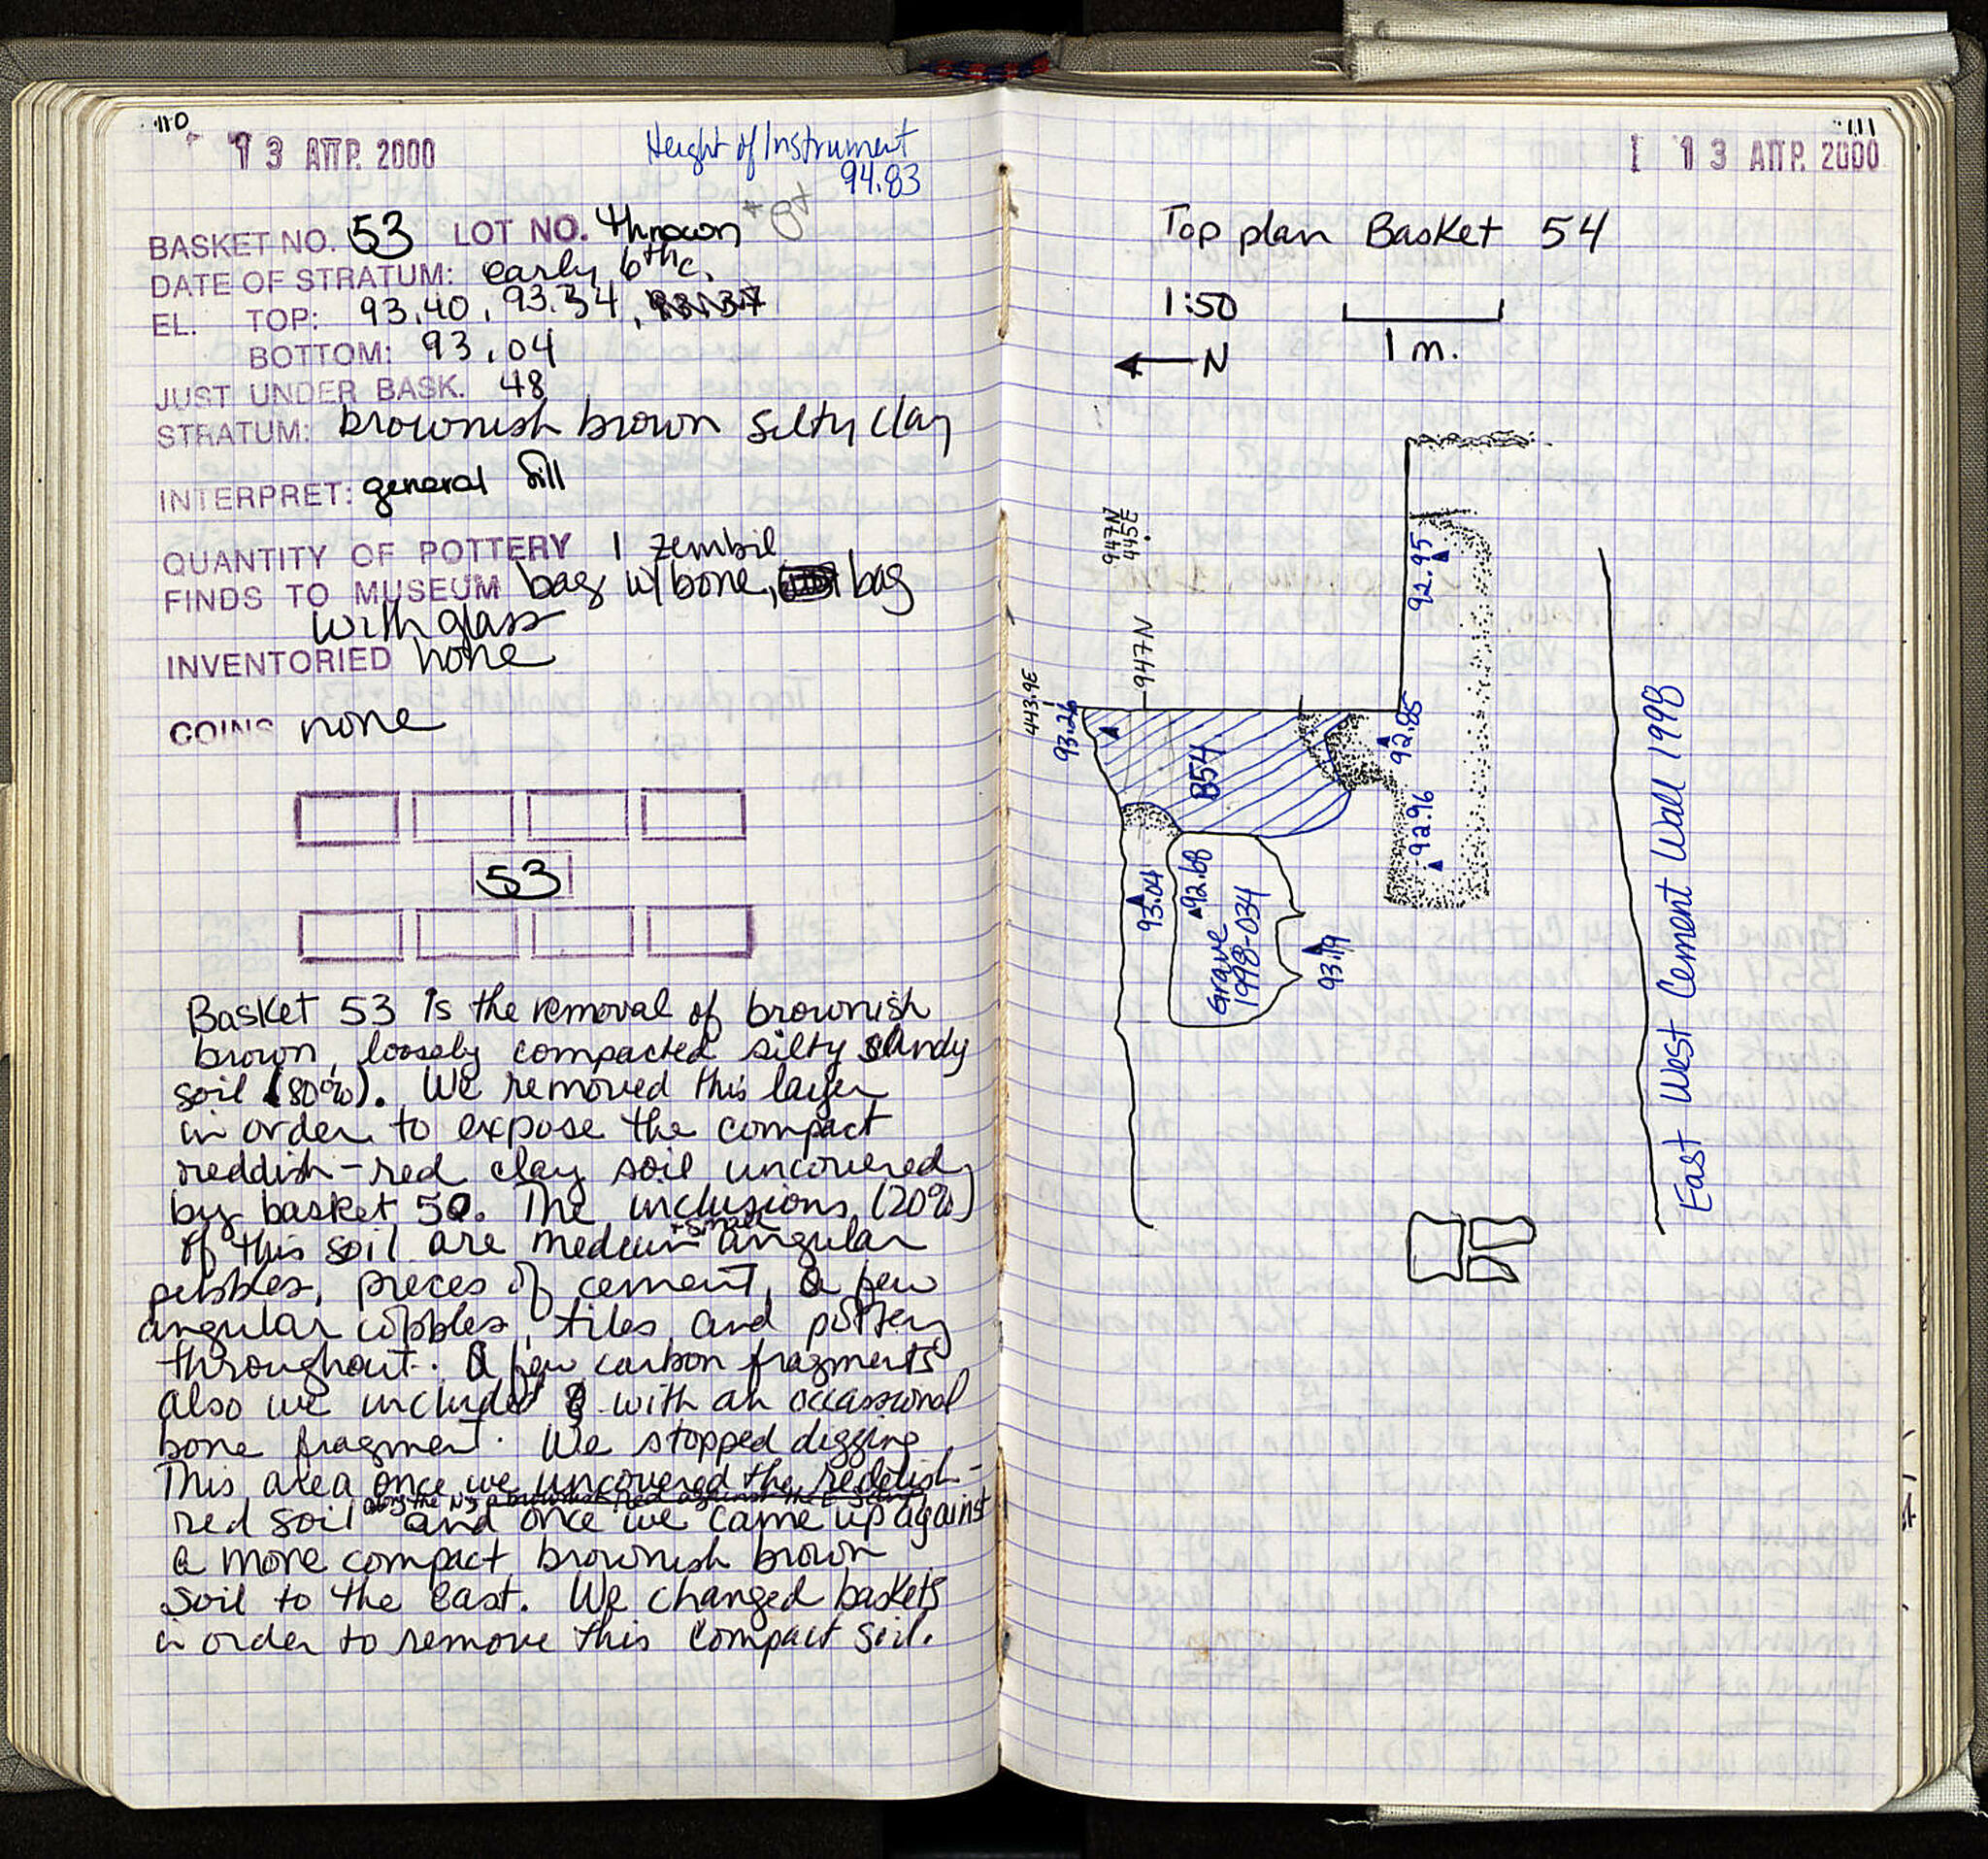 110
13 ΑΠΡ. 2000
Height of Instrument
94.83
BASKET NO. 53 LOT NO. thrown
DATE OF STRATUM: early 6th c.
EL. TOP: 93.40, 93.34,
BOTTOM: 93.04
JUST UNDER BASK. 48
STRATUM: brownish brown silty clay
INTERPRET: general fill
QUANTITY OF POTTERY 1 zembil
FINDS TO MUSEUM bag w/ bone, bag
with glass
INVENTORIED none
COINS none
53
Basket 53 is the removal of brownish
brown, loosely compacted silty sandy
soil (80%). We removed this layer
in order to expose the compact
reddish-red clay soil uncovered
by basket 50. The inclusions (20%)
of this soil are medium + small angular
pebbles, pieces of cement, a few
angular cobbles, tiles, and pottery
throughout. A few carbon fragments
also we included with an occassional
bone fragment. We stopped digging
This area once we uncovered the reddish-
red soil along the N and once we came up against
a more compact brownish brown
soil to the east. We changed baskets
in order to remove this compact soil.
111
13 ΑΠΡ. 2000
Top plan Basket 54
1:50
1 m.
N
947N
445E
947N
443.9E
93.26
B54
92.95
92.85
92.96
93.04
92.68
Grave
1998-034
93.19
East West Cement Wall 1998